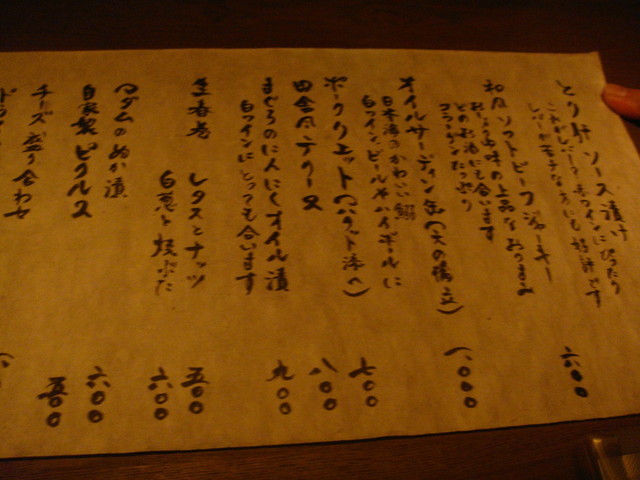 とり肝ソース漬け
これがレバー？赤ワインにぴったり
レバーが苦手な方にも好評です
六〇〇
和風ソフトビーフジャーキー
おしょうゆ味の上品なおつまみ
どのお酒にも合います
コラーゲンたっぷり
一、〇〇〇
オイルサーディン缶（天の橋立）
日本海のかわいい鰯
白ワイン、ビールやハイボールに
七〇〇
ポークリエット（バゲット添へ）
八〇〇
田舎風テリーヌ
九〇〇
まぐろのにんにくオイル漬
白ワインにとっても合います
生春巻 レタスとナッツ
五〇〇
白魚と枝豆
六〇〇
マダムのぬか漬
六〇〇
自家製ピクルス
五〇〇
チーズ盛り合わせ
ドラ